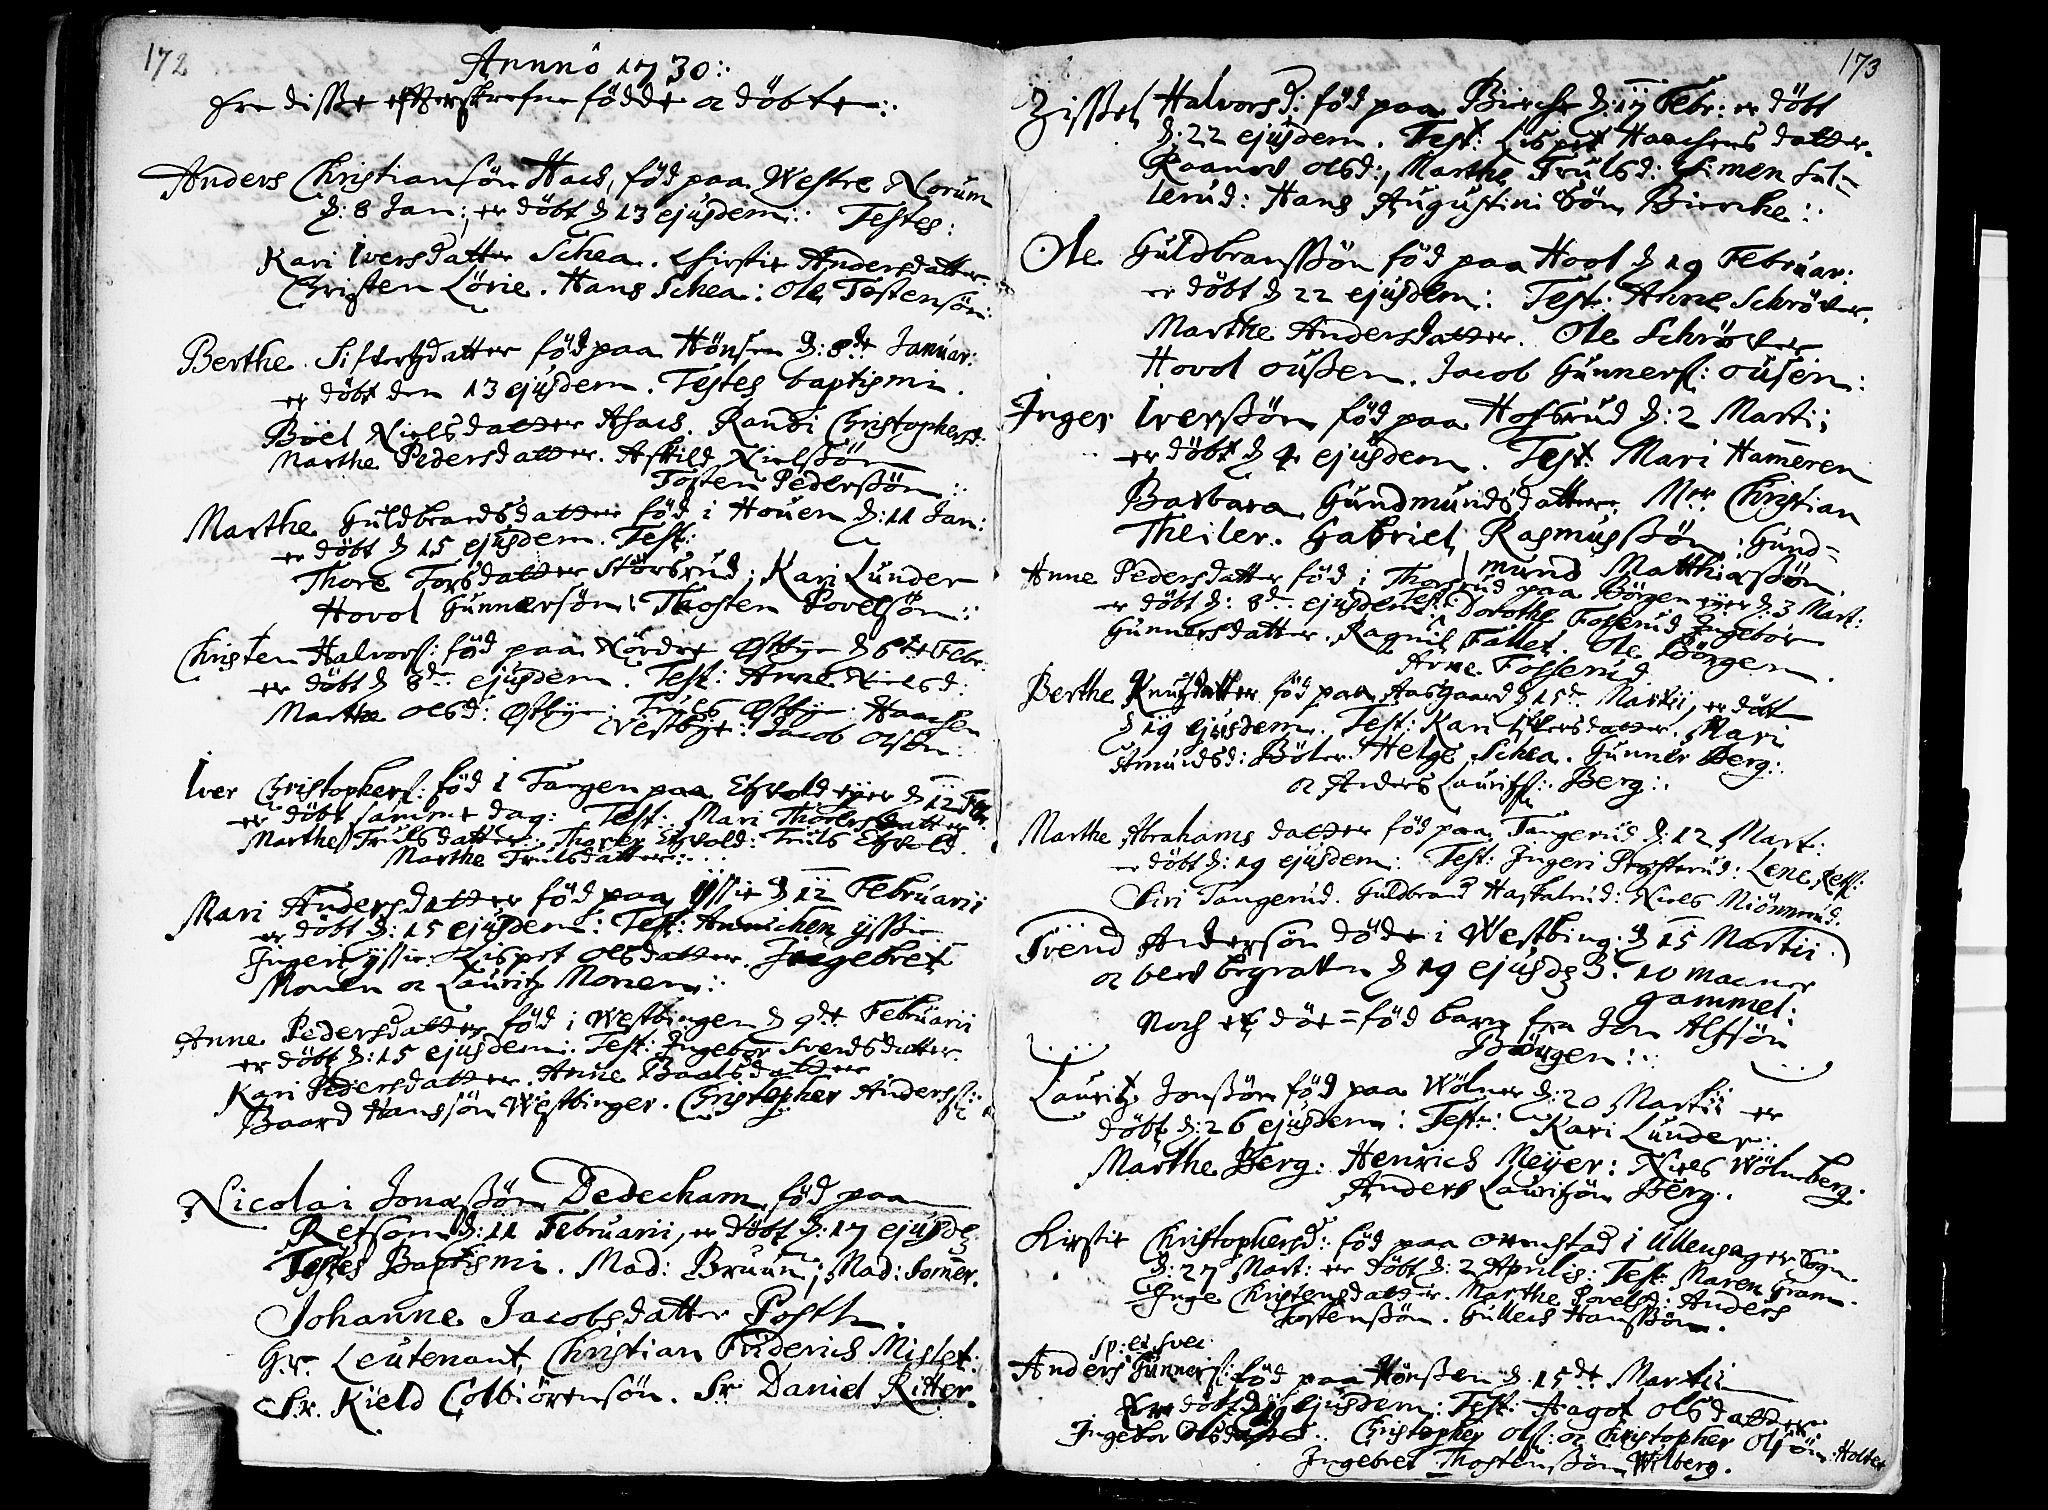 172
Annô 1730:
Ere disse efterskrefne fødde oc døbte:
Anders Christiansøn Haes, fød paa Westre Norum
d: 8 Jan:, er døbt d 13 ejusdem: Testes:
Kari Iversdatter Schea. Chirstie Andersdatter
Christen Lörie. Hans Schea: Ole Tostensön:
Berthe Sifversdatter fød paa Hönsen d: 8de Januar:
er döbt den 13 ejusdem. Testes baptismi.
Böel Nielsdatter Randi Christophersd:
Marthe Pedersdatter. Askild Nielssön
Tosten Pederssön:
Marthe Guldbrandsdatter född i Houen d: 11 Jan:
er döbt d 15 ejusdem. Test:
Thore Torsdatter Störsrud; Kari Lunder
Hovol Gunnersön; Thosten Povelsön:
Christen Halvors: född paa Nördre Østbye d 6te Febr:
er döbt d 8de ejusdem. Test: Anne Nielsd:
Marthe Olsd: Østbye: Truls Østbye: Haachen
Vestbye: Jacob Olsen:
Iver Christophers: född i Tangen paa eyer d 12 Febr.
er döbt samme dag: Test: Mari Thorersdatter
Marthe Trulsdatter: Truls
Marthe Trulsdatter:
Mari Andersdatter född paa ÿssie d 12 Februarii
er döbt d: 15 ejusdem: Test: Annichen ÿssie
Ingeri ÿssie. Lispet Olsdatter. Ingebret
Monen oc Lauritz Monen:
Anne Pedersdatter född i Westbingen d 9de Februarii
er döbt d: 15 ejusdem: Test: Ingebor Svendsdatter
Kari Pedersdatter. Anne Baalsdatter
Baard Hanssön Westbinger. Christopher Anderss:
Nicolai Jonassön Dedecham född paa
Refsom d: 11 Februarii, er döbt d: 17 ejusd:
Testes Baptismi. Mad: Bruun; Mad: Somer.
Johanne Jacobsdatter Posth.
Hr. Leutenant Christian Friderich Mistet:
Sr. Kield Colbiörensön. Sr. Daniel Ritter.
173
Zissel Halvorsd: född paa Bierche d: 17 Febr: er döbt
d: 22 ejusdem. Test: Lispet Haachensdatter.
Raanov Olsd:, Marthe Trulsd: Simen Ful=
lerud: Hans Augustini Sön Bierche:
Ole Guldbranssön född paa Hool d 19 Februar:
er döbt d 22 ejusdem: Test: Anne Schröder.
Marthe Andersdatter. Ole Schröder
Hovol ousen. Jacob Gunners: ousen:
Inger Iverssön född paa Hofsrud d: 2 Marti:
er döbt d 4 ejusdem. Test: Mari Hammeren
Barbara Gundmundsdatter. Mr. Christian
Theiler. Gabriel Rasmussön: Gund=
mund Matthiassön
Anne Pedersdatter född i Thorsrud paa Börgen eyer d: 3 Mart:
er döbt d: 8de ejusdem: Test: Dorothe Fosserud Ingebor
Gunnersdatter. Ragnil Fallet. Ole Börgen
Arne Fosserud.
Berthe Knudsdatter född paa Aasgaard d 15de Martii, er döbt
d 19 ejusdem. Test: Kari Mari
Amundsd: Böler. Helge Schea. Gunner Berg:
oc Anders Lauritss: Berg:
Marthe Abrahamsdatter född paa Tangerud d: 12 Mart:
er döbt d: 19 ejusdem: Test: Ingeri Lene
Siri Tangerud. Guldbrand Haskalrud: Niels Miönnerud.
Trend Andersön döde i Westbing: d 15 Martii
oc blev begraven d 19 ejusd: 10 maaner
gammel:
Noch et död=föd barn fra Jon Alfsön
Börgen:
Lauritz Jonssön född paa Wölner d: 20 Martii er
döbt d: 26 ejusdem: Test: Kari Lunder:
Marthe Berg: Henrich Meÿer: Niels Wölnerberg.
Anders Lauritsön Berg:
Kirstie Christophersd: född paa ormstad i Ullensager Sogn.
d: 27 Mart: er döbt d: 2 Aprilis: Test: Maren Gram.
Inge Christensdatter. Marthe Povelsd: Anders
Tostenssön. Gullech Hanssön.
Anders Gunners: född paa Hönssen d. 15de Martii
er döbt d 19 ejusdem: Test: Hagot Olsdatter
Ingebor Olsdatter. Christopher Ols: oc Christopher Olsön Holter
Ingebret Thostenssön Wilberg.